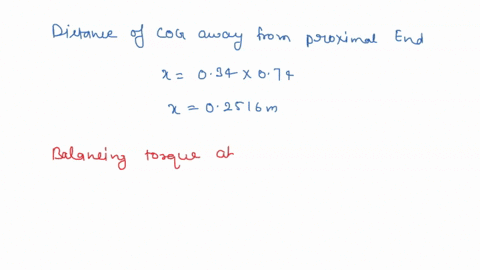 Distance of COG away from proximal End
x = 0.34 × 0.74
x = 0.2516 m
Balancing torque at